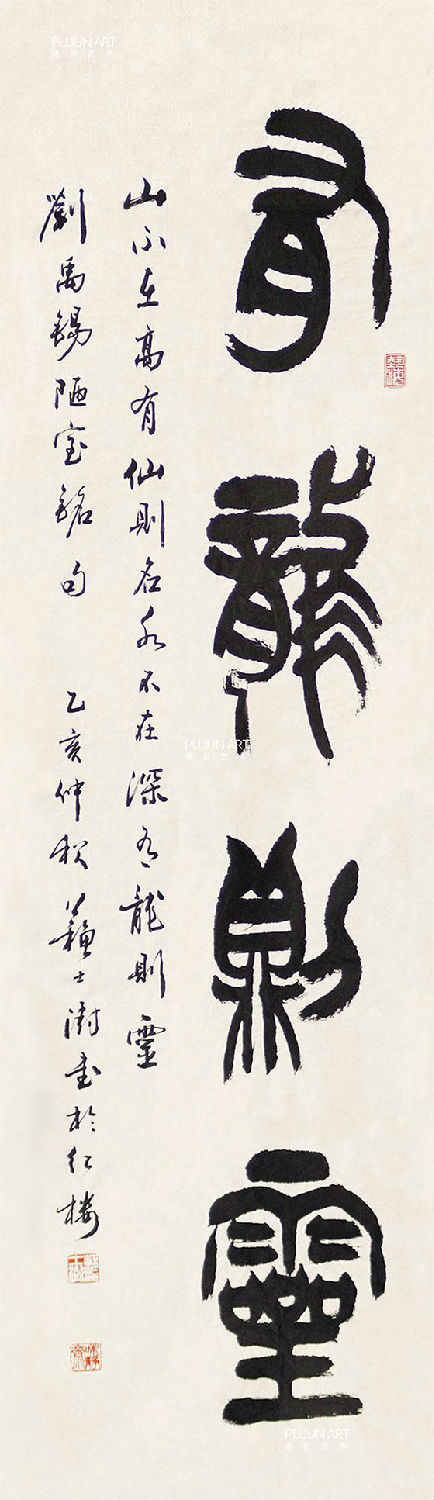 有龍則靈
山不在高有仙則名水不在深有龍則靈
劉禹錫陋室銘句 乙亥仲秋蘇士澍書於紅樓
PUJUN ART
PUJUN ART
PUJUN ART